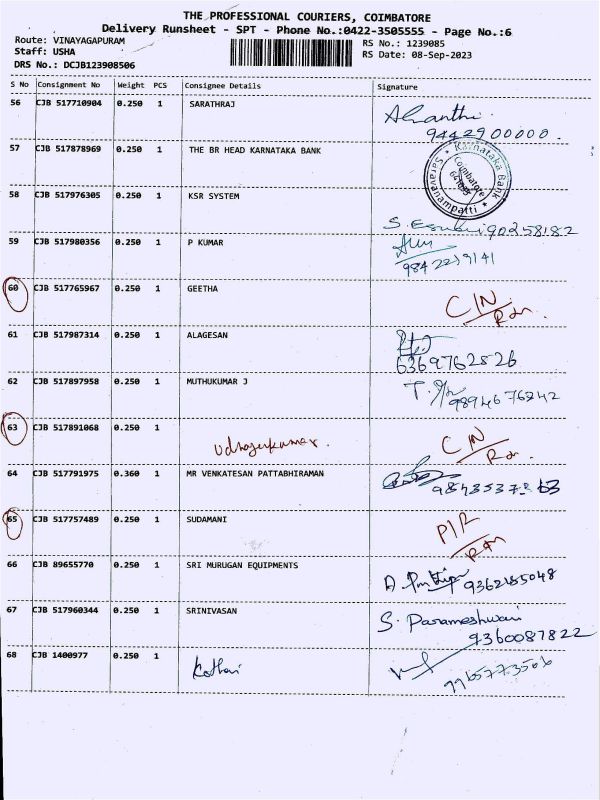 THE PROFESSIONAL COURIERS, COIMBATORE
Delivery Runsheet - SPT - Phone No.:0422-3505555 - Page No.:6
Route: VINAYAGAPURAM
Staff: USHA
DRS No.: DCJB123908506
RS No.: 1239085
RS Date: 08-Sep-2023
S No Consignment No Weight PCS Consignee Details Signature
56 CJB 517710904 0.250 1 SARATHRAJ
9442900000.
57 CJB 517878969 0.250 1 THE BR HEAD KARNATAKA BANK
Karnataka Bank
Coimbatore
Saravanampatti
58 CJB 517976305 0.250 1 KSR SYSTEM
59 CJB 517980356 0.250 1 P KUMAR
60 CJB 517765967 0.250 1 GEETHA C/N
61 CJB 517987314 0.250 1 ALAGESAN
6369762826
62 CJB 517897958 0.250 1 MUTHUKUMAR J
63 CJB 517891068 0.250 1 C/N
64 CJB 517791975 0.360 1 MR VENKATESAN PATTABHIRAMAN
65 CJB 517757489 0.250 1 SUDAMANI
66 CJB 89655770 0.250 1 SRI MURUGAN EQUIPMENTS
9362185048
67 CJB 517960344 0.250 1 SRINIVASAN S. Parameshwari
9360087822
68 CJB 1400977 0.250 1 Kothari